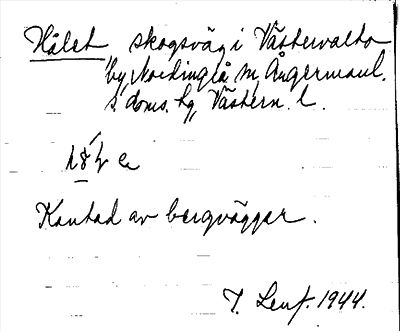 Hålet, skogsväg i Västervalto
by, Nordingrå sn, Ångermanl.
s. doms. hg, Västern. l.
Kantad av bergväggar.
T. Lenf. 1944.